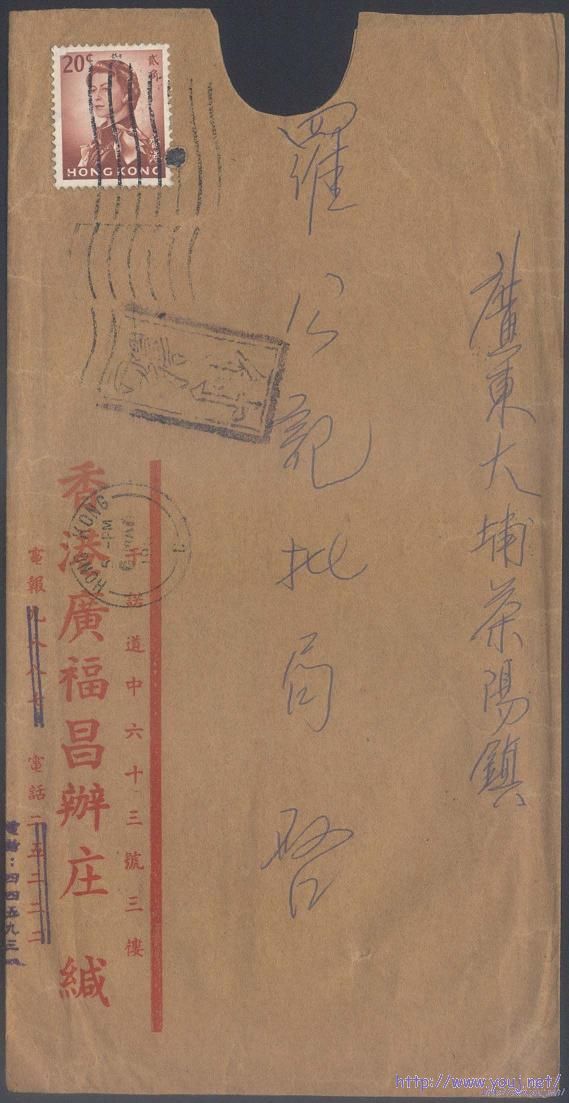 20c
HONG KONG
廣東大埔茶陽鎮
羅公記批局 啓
HONG KONG
PM
干諾道中六十三號三樓
香港廣福昌辦庄 緘
電報 電話二五二二二
電話:四四五九三
http://www.youj.net/